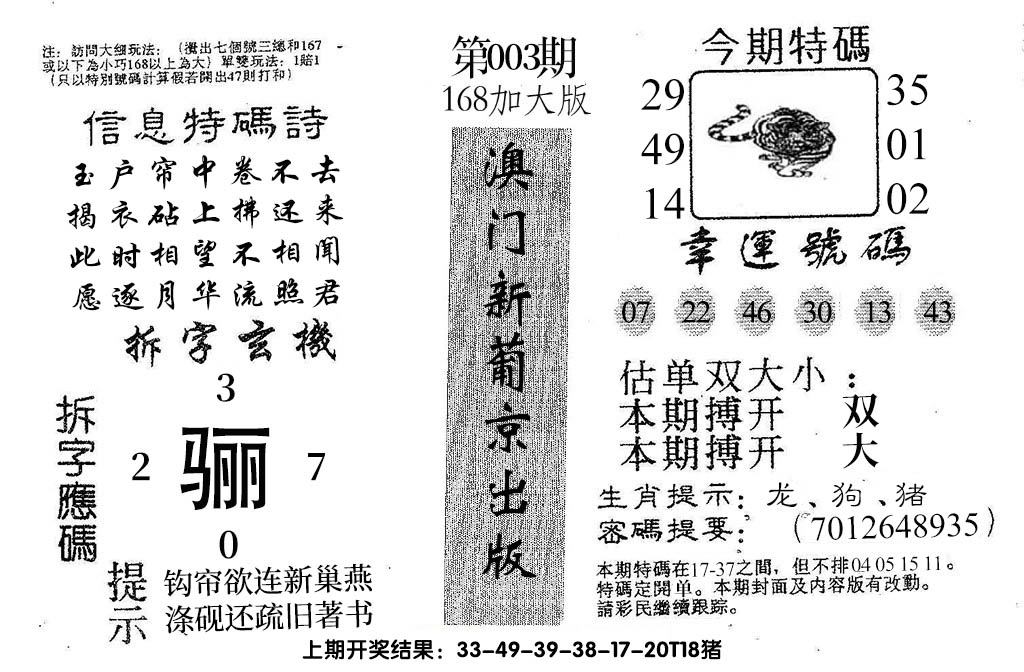 注：訪問大細玩法：(攪出七個號三總和167
或以下為小巧168以上為大）單雙玩法：1賠1
（只以特別號碼計算假若開出47則打和）
信息特碼詩
玉户帘中卷不去
揭衣砧上拂还来
此时相望不相闻
愿逐月华流照君
拆字玄機
拆字應碼
3
2 骊 7
0
提示
钩帘欲连新巢燕
涤砚还疏旧著书
第003期
168加大版
澳门新葡京出版
今期特碼
29 35
49 01
14 02
幸運號碼
07 22 46 30 13 43
估单双大小：
本期搏开 双
本期搏开 大
生肖提示：龙、狗、猪
密碼提要：（7012648935）
本期特碼在17-37之間，但不排04 05 15 11。
特碼定開单。本期封面及内容版有改動。
請彩民繼續跟踪。
上期开奖结果：33-49-39-38-17-20T18猪